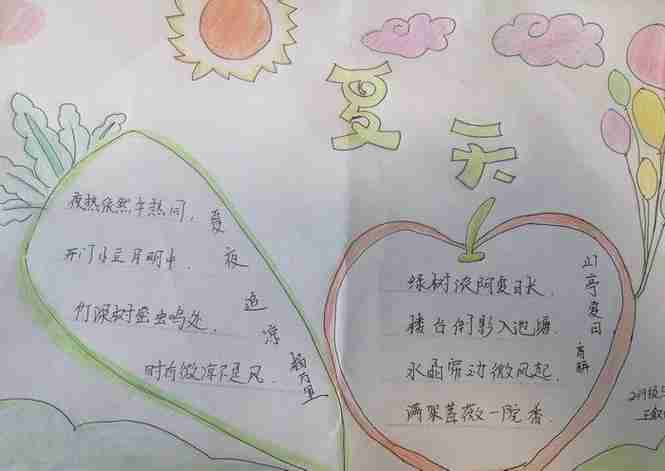 夏天
夜热依然午热同,
开门小立月明中.
竹深树密虫鸣处.
时有微凉不是风.
夏夜追凉
杨万里
绿树浓阴夏日长.
楼台倒影入池塘.
水晶帘动微风起.
满架蔷薇一院香.
山亭夏日
高骈